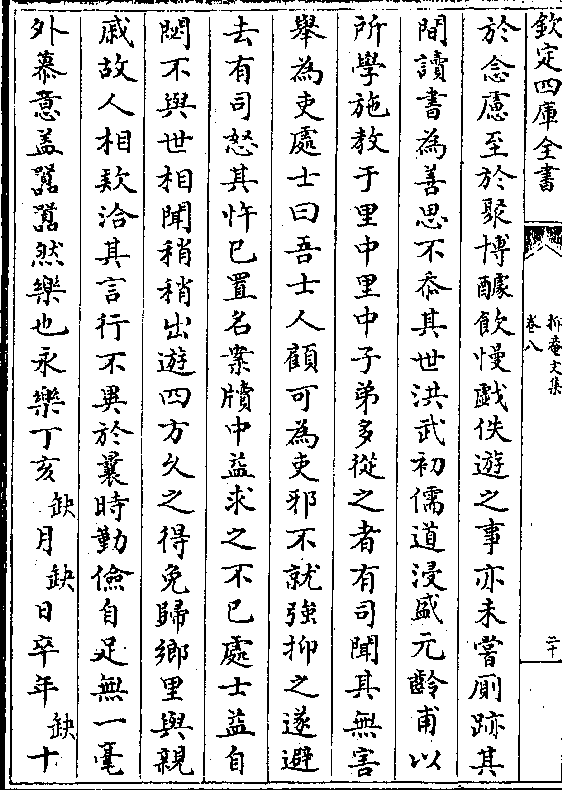 欽定四庫全書
抑菴文集
卷八
二十
於念慮至於聚博醵飲慢戱佚遊之事亦未嘗厠跡其
間讀書為善思不忝其世洪武初儒道浸盛元齡甫以
所學施教于里中里中子弟多從之者有司聞其無害
舉為吏處士曰吾士人顧可為吏邪不就強抑之遂避
去有司怒其忤已置名案牘中益求之不已處士益自
閟不與世相聞稍稍出遊四方久之得免歸鄉里與親
戚故人相欵洽其言行不異於曩時勤儉自足無一毫
外慕意盖嚣嚣然樂也永樂丁亥缺月缺日卒年缺十